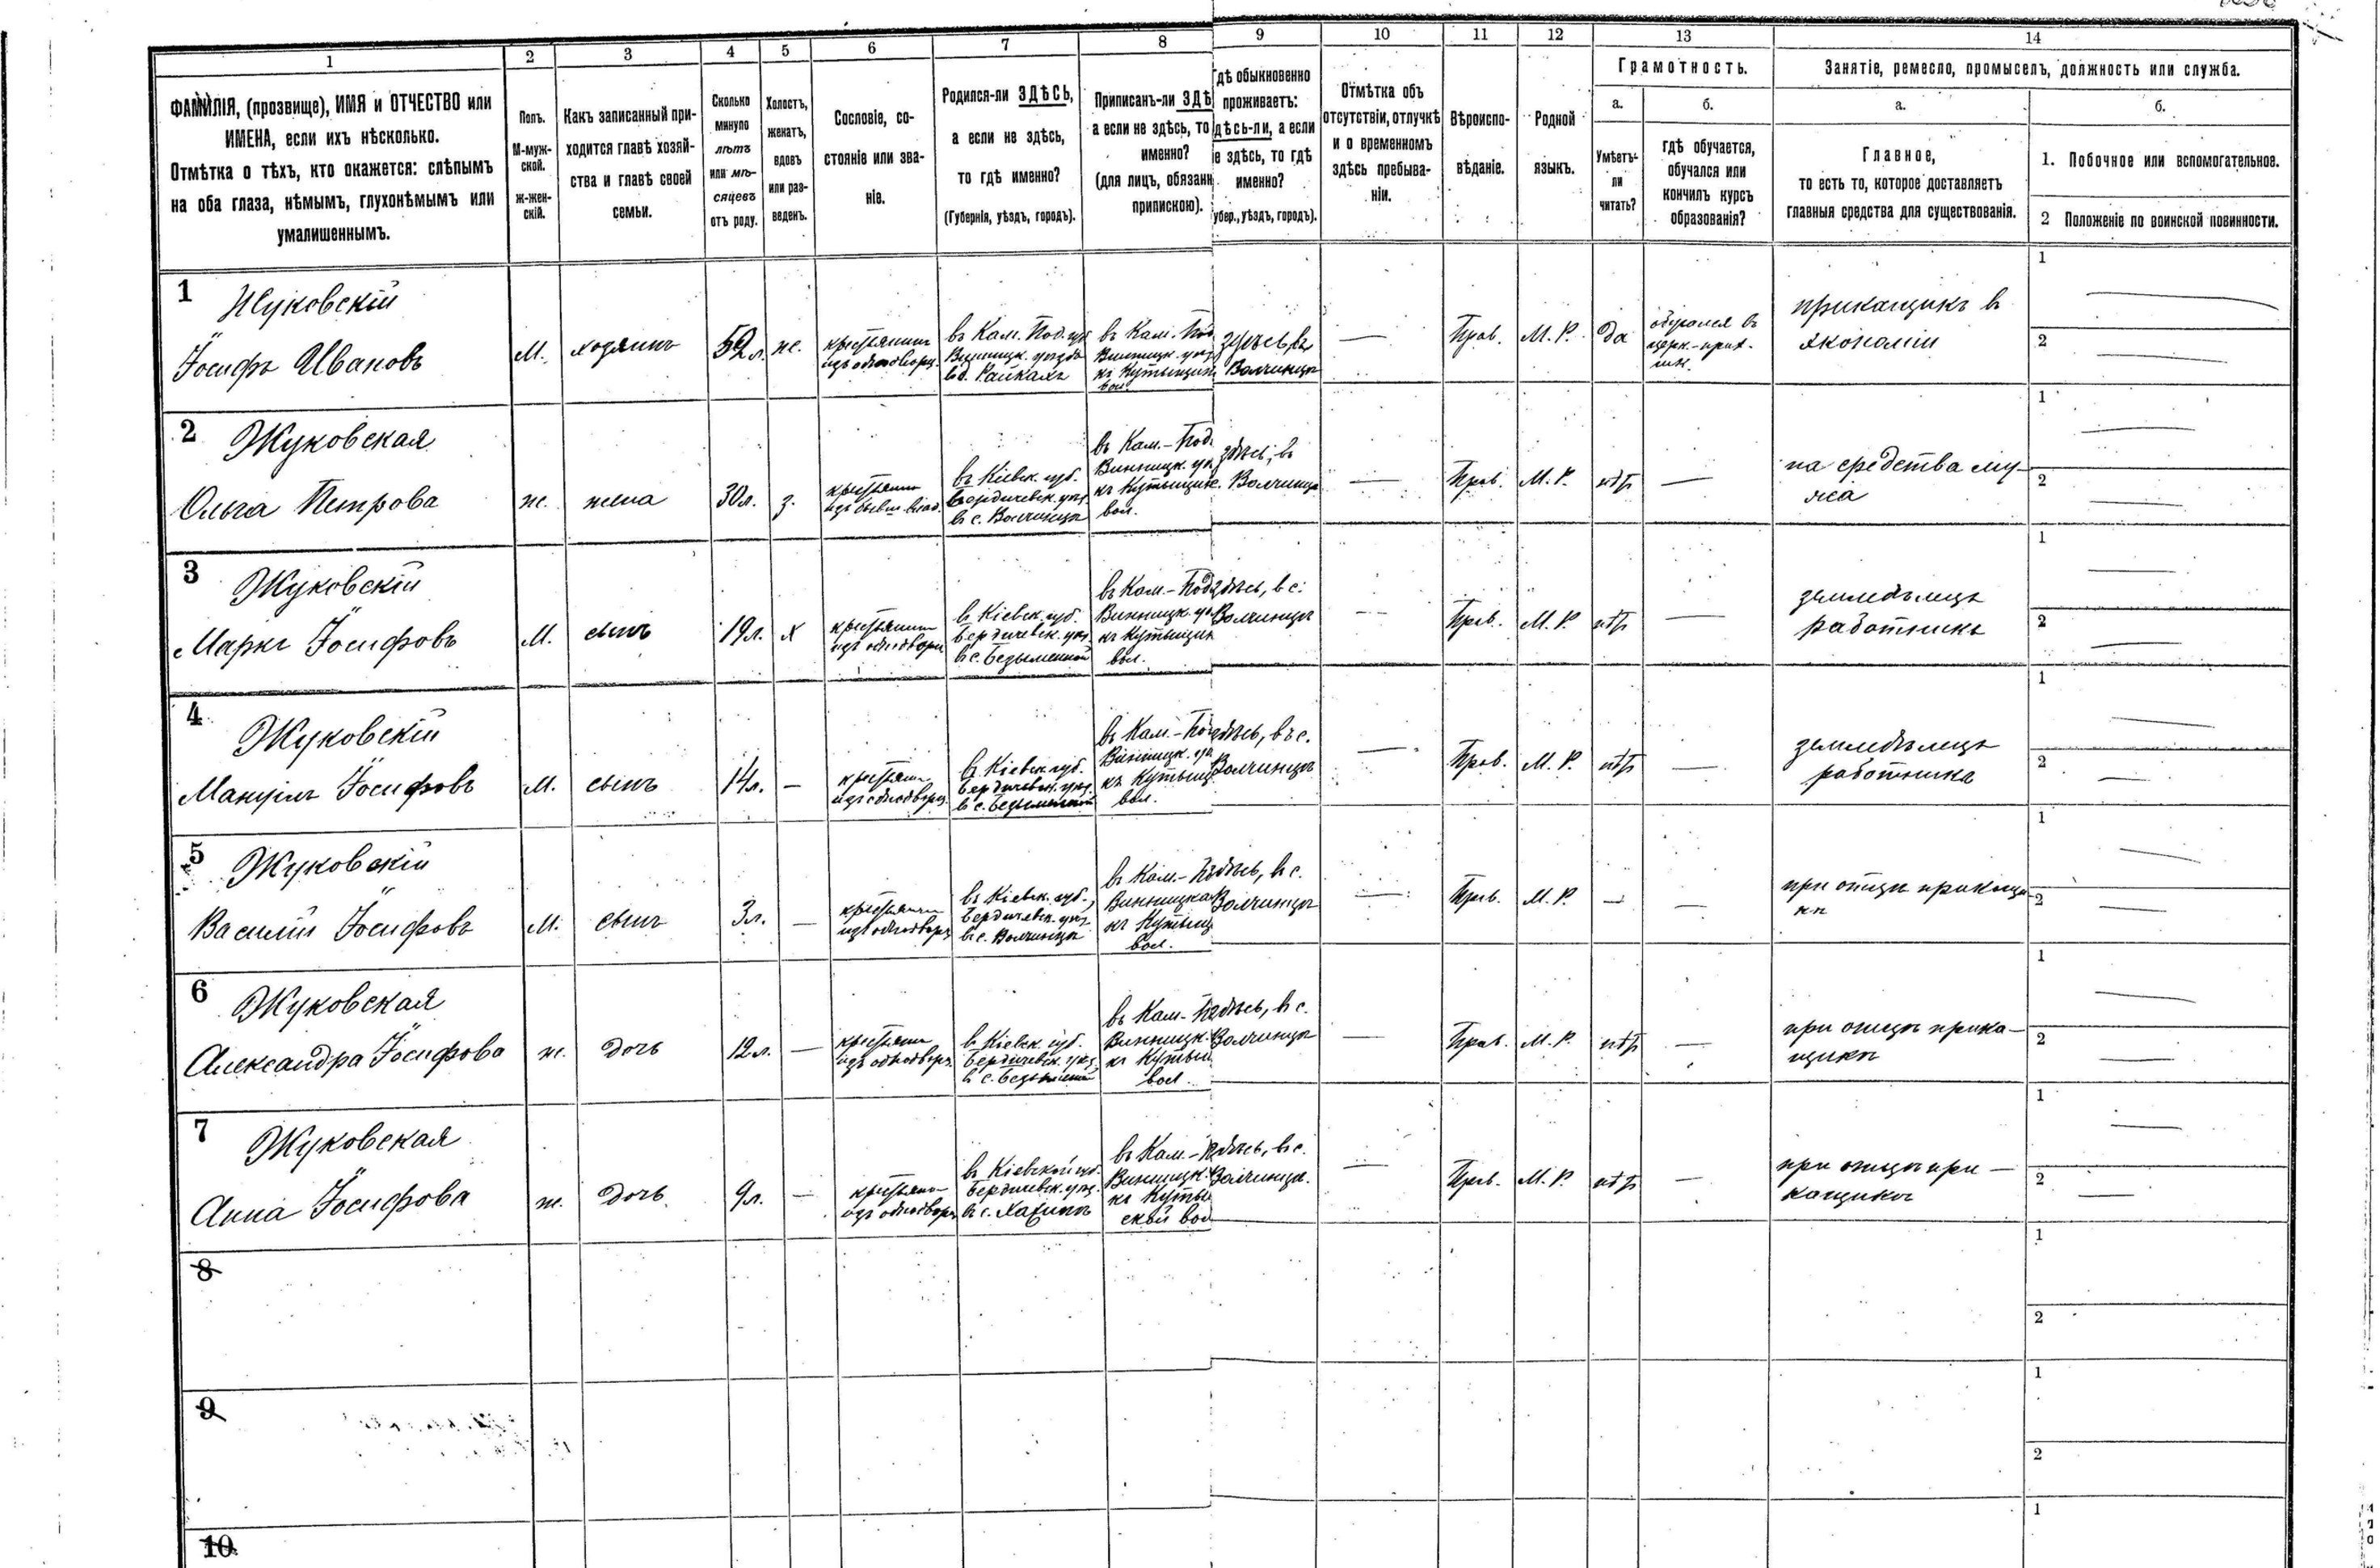 1
2
3
4
5
6
7
8
9
10
11
12
13
14
ФАМИЛІЯ, (прозвище), ИМЯ и ОТЧЕСТВО или
ИМЕНА, если ихъ нѣсколько.
Отмѣтка о тѣхъ, кто окажется: слѣпымъ
на оба глаза, нѣмымъ, глухонѣмымъ или
умалишеннымъ.
Полъ.
М-муж-
ской.
ж-жен-
скій.
Какъ записанный при-
ходится главѣ хозяй-
ства и главѣ своей
семьи.
Сколько
минуло
лѣтъ
или мѣ-
сяцевъ
отъ роду.
Холостъ,
женатъ,
вдовъ
или раз-
веденъ.
Сословіе, со-
стояніе или зва-
ніе.
Родился-ли ЗДѢСЬ,
а если не здѣсь,
то гдѣ именно?
(Губернія, уѣздъ, городъ).
Приписанъ-ли ЗДѢ
а если не здѣсь, то
именно?
(для лицъ, обязанн
припискою).
гдѣ обыкновенно
проживаетъ:
дѣсь-ли, а если
е здѣсь, то гдѣ
именно?
убер., уѣздъ, городъ).
Отмѣтка объ
отсутствіи, отлучкѣ
и о временномъ
здѣсь пребыва-
ніи.
Вѣроиспо-
вѣданіе.
Родной
языкъ.
Грамотность.
а.
Умѣетъ-
ли
читать?
б.
гдѣ обучается,
обучался или
кончилъ курсъ
образованія?
Занятіе, ремесло, промыселъ, должность или служба.
а.
Главное,
то есть то, которое доставляетъ
главныя средства для существованія.
б.
1. Побочное или вспомогательное.
2 Положеніе по воинской повинности.
1 Жуковскій
Іосифъ Ивановъ
М.
хозяинъ
52 л.
же.
крестьянинъ
изъ однодворц.
въ Кам. Под. губ
Винницк. уѣзда
въ д. Райкахъ
въ Кам. Под
Винницк. уѣз
вол.
здѣсь, въ
Волчинцы
—
Прав.
М. Р.
да
обучался в
церк.-прих.
шк.
прикащикъ в
экономіи
1
2
2 Жуковская
Ольга Петрова
ж.
жена
30 л.
з.
изъ бывш. влад.
въ Кіевск. губ.
Бердичевск. уѣз
въ с. Волчинцы
въ Кам.-Под.
Винницк. уѣ
вол.
здѣсь, в
с. Волчинцы
—
Прав.
М. Р.
нѣт
—
на средства му-
жа
1
2
3 Жуковскій
Маркъ Іосифовъ
М.
сынъ
19 л.
х
крестьянинъ
изъ однодворц
в Кіевск. губ.
Бердичевск. уѣз
въ с. Безыменной
въ Кам.-Под
Винницк. уѣ
вол.
здѣсь, в с.
Волчинцы
—
Прав.
М. Р.
нѣт
—
земледѣлецъ
работникъ
1
2
4 Жуковскій
Мануилъ Іосифовъ
М.
сынъ
14 л.
—
изъ однодворц.
в Кіевск. губ.
Бердичевск. уѣз.
въ с. Безыменной
въ Кам.-По
Винницк. уѣ
вол.
здѣсь, въ с.
Волчинцы
—
Прав.
М. Р.
нѣт
—
земледѣлецъ
работникъ
1
2
5 Жуковскій
Василій Іосифовъ
М.
сынъ
3 л.
—
изъ однодворц
въ Кіевск. губ.,
Бердичевск. уѣз
въ с. Волчинцы
въ Кам.-П
вол.
здѣсь, в с.
Волчинцы
—
Прав.
М. Р.
—
—
при отцѣ прикащи-
кѣ
1
2
6 Жуковская
Александра Іосифова
ж.
дочь
12 л.
—
изъ однодворц.
в Кіевск. губ.
Бердичевск. уѣз.
в с. Безыменной
въ Кам.-П
Винницк.
вол.
здѣсь, в с.
Волчинцы
—
Прав.
М. Р.
нѣт
—
при отцѣ прика-
щикѣ
1
2
7 Жуковская
Анна Іосифова
ж.
дочь
9 л.
—
изъ однодворц
въ Кіевской губ.
Бердичевск. уѣз.
въ с.
въ Кам.-
Винницк.
ской вол
здѣсь, в с.
Волчинцы.
—
Прав.
М. Р.
нѣт
—
при отцѣ при-
кащикѣ
1
2
8
1
2
9
1
2
10
1